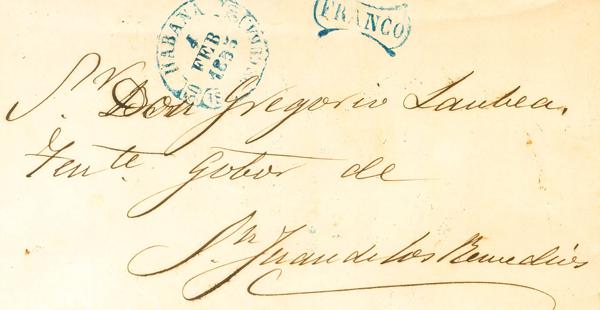 HABANA
1
FEB
1855
FRANCO
Sr. Don Gregorio Laubea.
Tente. Gobor de
Sn Juan de los Remedios